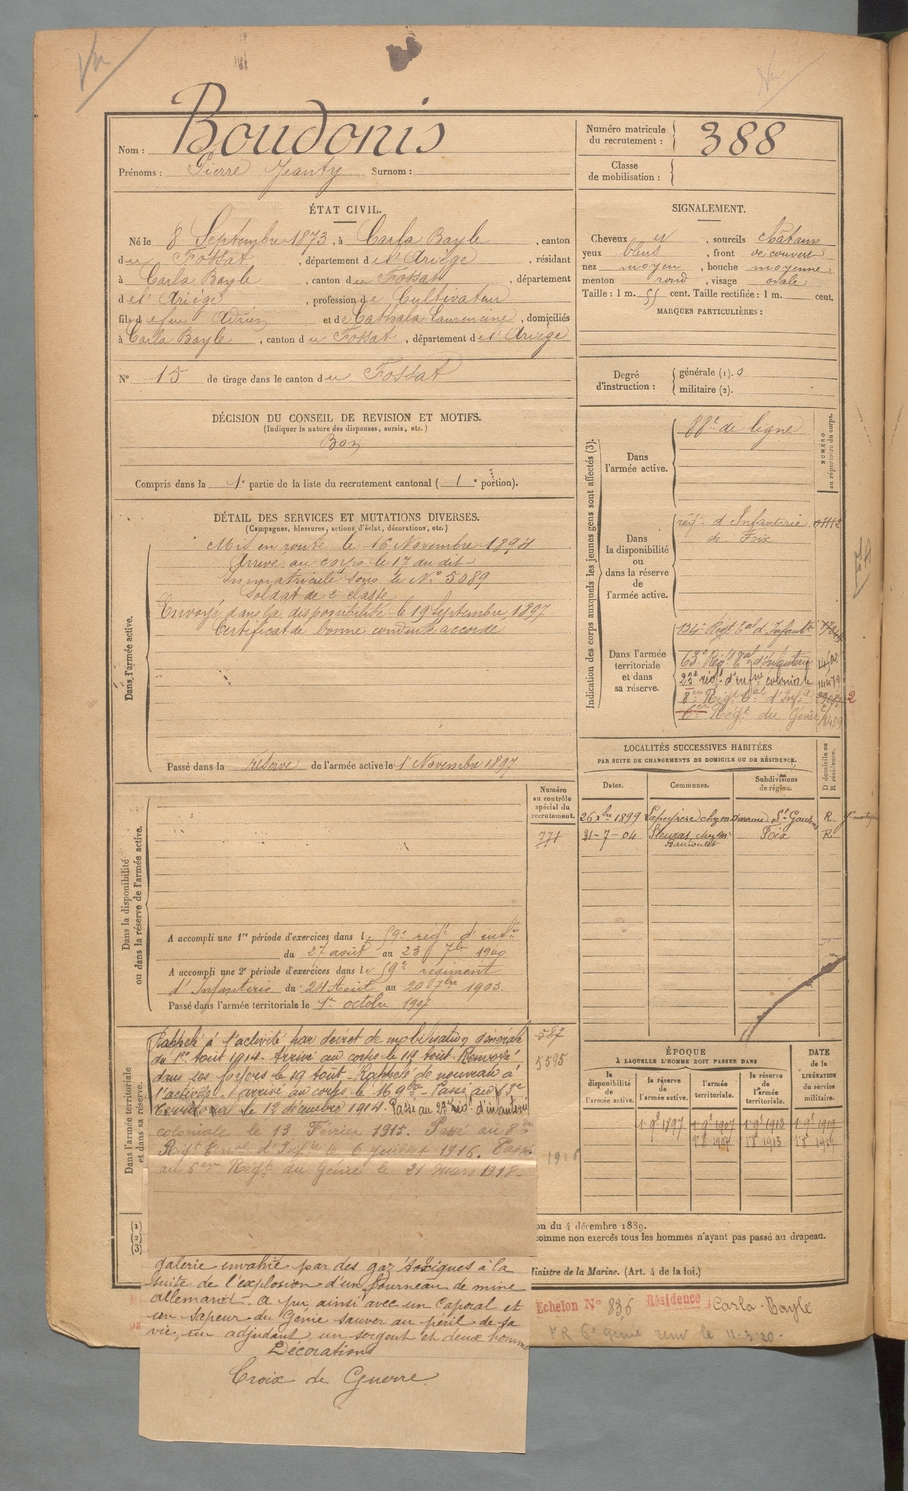 Nom : Boudonis
Prénoms : Pierre Jeanty Surnom :
Numéro matricule du recrutement : 388
Classe de mobilisation :
ÉTAT CIVIL.
Né le 8 Septembre 1873, à Carla Bayle, canton
du Fossat, département de l'Ariège, résidant
à Carla Bayle, canton du Fossat, département
de l'Ariège, profession de Cultivateur
fils de feu et de Laurencine, domiciliés
à Carla Bayle, canton du Fossat, département de l'Ariège
N° 15 de tirage dans le canton du Fossat
SIGNALEMENT.
Cheveux et, sourcils châtains
yeux bleus, front découvert
nez moyen, bouche moyenne,
menton rond, visage ovale
Taille : 1 m. 55 cent. Taille rectifiée : 1 m. cent.
MARQUES PARTICULIÈRES :
Degré d'instruction :
générale (1). 0
militaire (2).
DÉCISION DU CONSEIL DE REVISION ET MOTIFS.
(Indiquer la nature des dispenses, sursis, etc.)
Bon
Compris dans la 1e partie de la liste du recrutement cantonal ( 1e portion).
DÉTAIL DES SERVICES ET MUTATIONS DIVERSES.
(Campagnes, blessures, actions d'éclat, décorations, etc.)
Dans l'armée active.
Mis en route le 16 Novembre 1894
Arrivé au corps le 17 du dit
Immatriculé sous le N° 5089
Soldat de 2e classe
Envoyé dans la disponibilité le 19 Septembre 1897
Certificat de bonne conduite accordé
Passé dans la réserve de l'armée active le 1 Novembre 1897
Indication des corps auxquels les jeunes gens sont affectés (3).
NUMÉRO au répertoire du corps.
Dans l'armée active.
88e de ligne
Dans la disponibilité ou dans la réserve de l'armée active.
régt d'Infanterie
de Foix
Dans l'armée territoriale et dans sa réserve.
134e Régt tal d'Infantie
63e Régt tal d'Infanterie
23e régt d'infie coloniale
8e Régt tal d'Infie
6e Régt du Génie
LOCALITÉS SUCCESSIVES HABITÉES
PAR SUITE DE CHANGEMENTS DE DOMICILE OU DE RÉSIDENCE.
Dates. Communes. Subdivisions de région. D domicile ou R résidence.
26 xbre 1899 St Gaudens R
31-7-04 Foix R
Numéro au contrôle spécial du recrutement.
771
Dans la disponibilité ou dans la réserve de l'armée active.
A accompli une 1re période d'exercices dans le 59e régt d'infie
du 27 août au 23 7bre 1900
A accompli une 2e période d'exercices dans le 59e régiment
d'Infanterie du 24 Août au 20 7bre 1903
Passé dans l'armée territoriale le 1er octobre 1907
Dans l'armée territoriale et dans sa réserve.
Rappelé à l'activité par décret de mobilisation générale
du 1er Août 1914. Arrivé au corps le 14 août. Renvoyé
dans ses foyers le 19 août. Rappelé de nouveau à
l'activité. Arrivé au corps le 16 9bre. Passé au
le 12 décembre 1914. Passé au 23e régt d'infanterie
coloniale le 13 Février 1915. Passé au 8e
Régt tal d'Infie le 6 juillet 1916. Passé
au 6e Régt du Génie le 21 mars 1918.
587
5595
ÉPOQUE
À LAQUELLE L'HOMME DOIT PASSER DANS
la disponibilité de l'armée active. la réserve de l'armée active. l'armée territoriale. la réserve de l'armée territoriale.
DATE de la LIBÉRATION du service militaire.
1 9 1897 1 9 1907 1 9 1913 1 9 1919
on du 4 décembre 1889.
comme non exercés tous les hommes n'ayant pas passé au drapeau.
Ministre de la Marine. (Art. 4 de la loi.)
galerie envahie par des gaz toxiques à la
suite de l'explosion d'un fourneau de mine
allemand. a pu ainsi avec un Caporal et
un sapeur du Génie sauver au péril de sa
vie, un adjudant, un sergent et deux hommes
Décorations
Croix de Guerre
Echelon N° 836 Résidence Carla-Bayle
6e génie renv le 11-3-20.